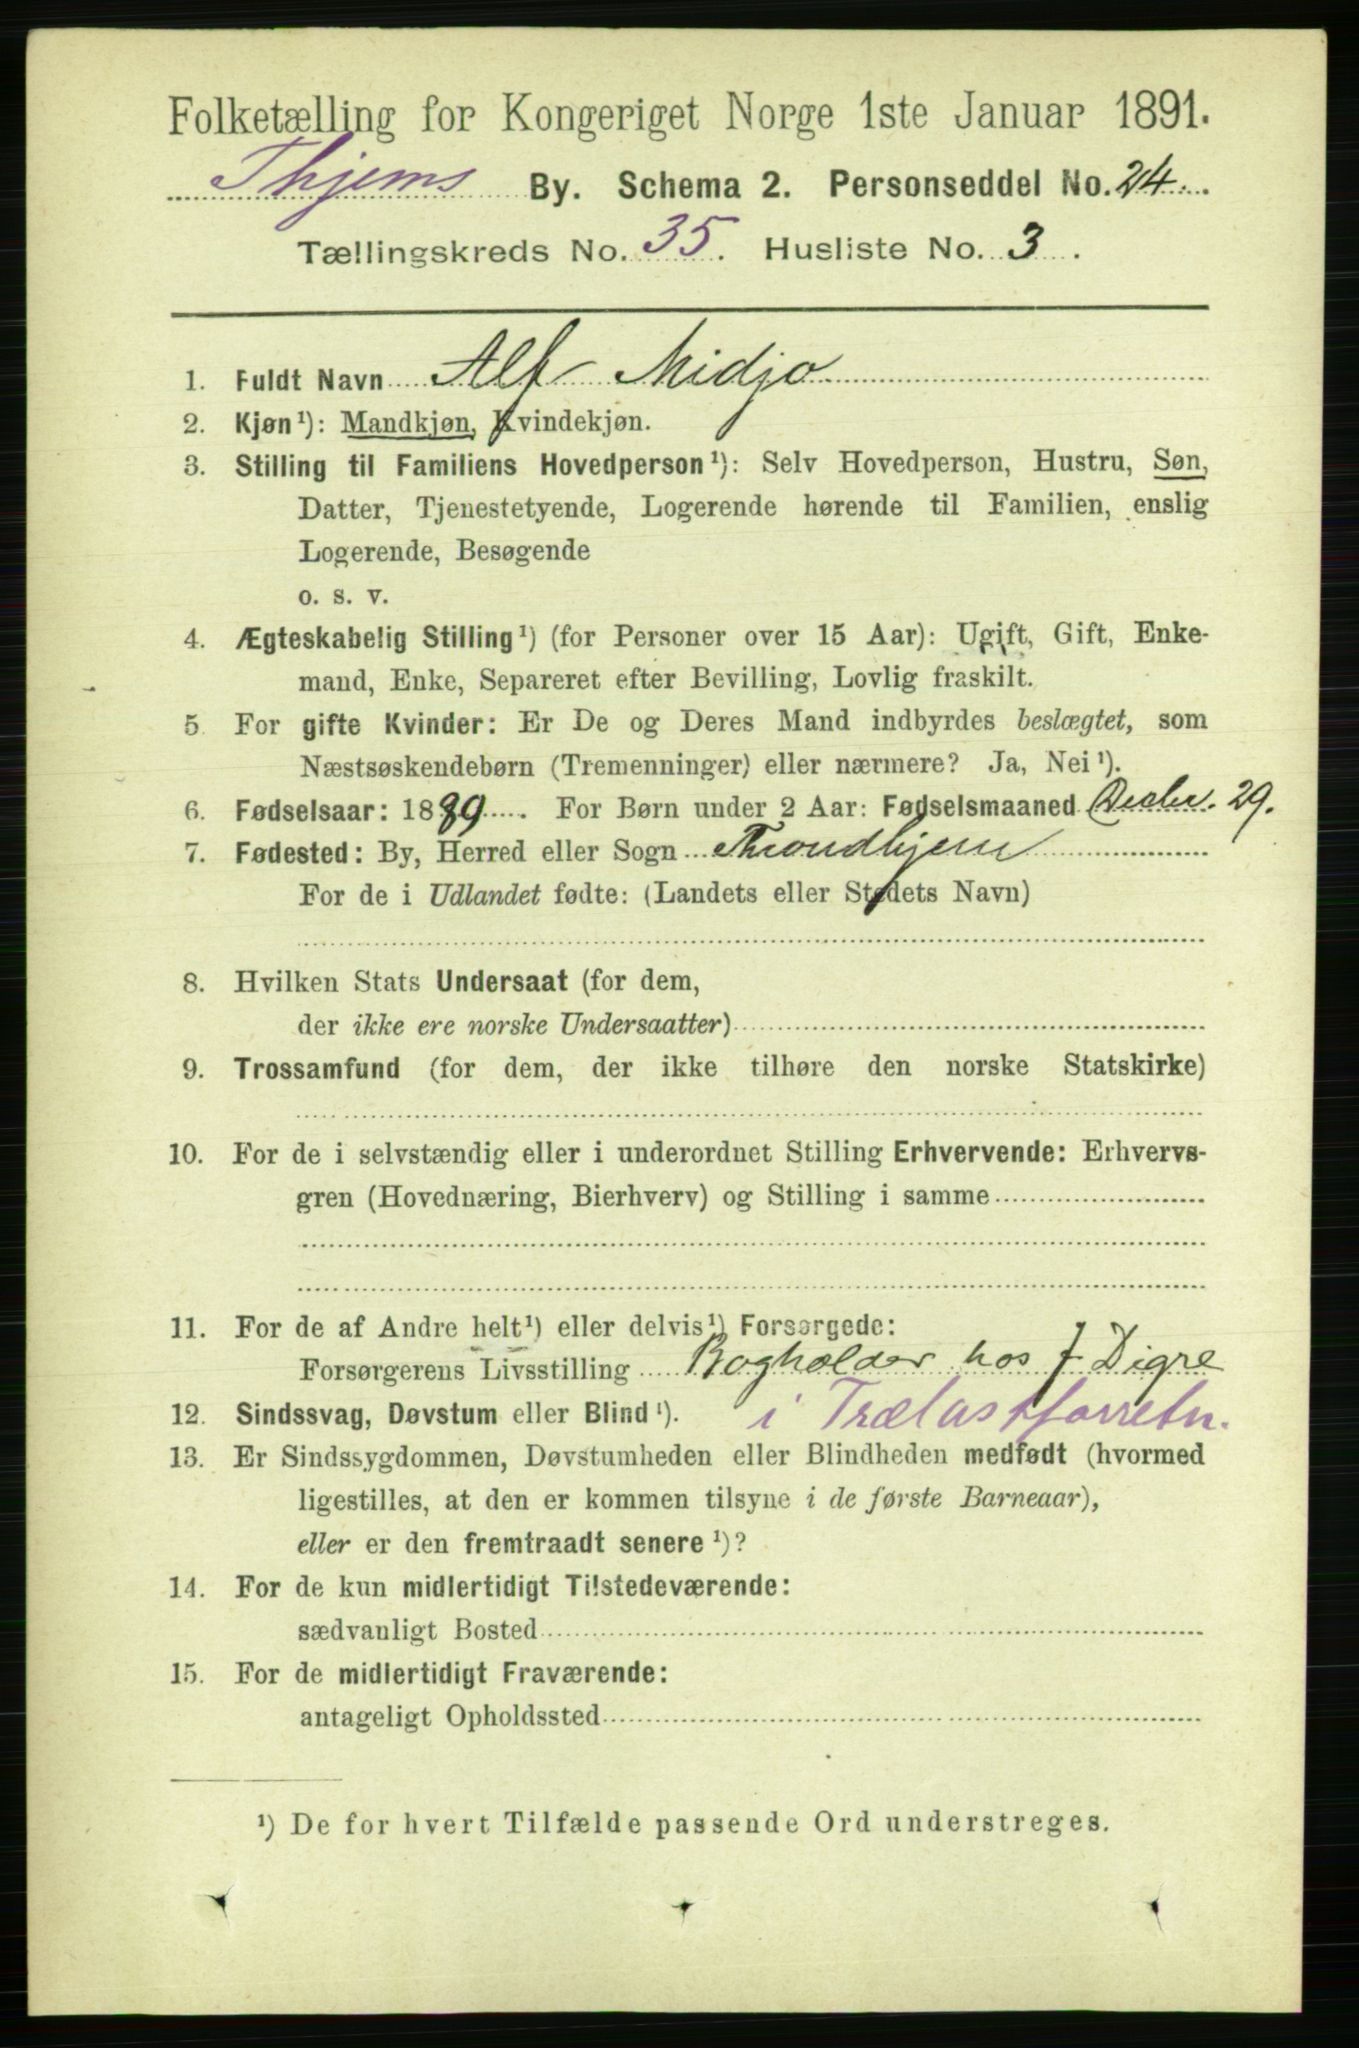 Folketælling for Kongeriget Norge 1ste Januar 1891.
Thjems By. Schema 2. Personseddel No. 24.
Tællingskreds No. 35. Husliste No. 3.
1. Fuldt Navn Alf Midjo
2. Kjøn¹): Mandkjøn, Kvindekjøn.
3. Stilling til Familiens Hovedperson¹): Selv Hovedperson, Hustru, Søn,
Datter, Tjenestetyende, Logerende hørende til Familien, enslig
Logerende, Besøgende
o. s. v.
4. Ægteskabelig Stilling¹) (for Personer over 15 Aar): Ugift, Gift, Enke-
mand, Enke, Separeret efter Bevilling, Lovlig fraskilt.
5 For gifte Kvinder: Er De og Deres Mand indbyrdes beslægtet, som
Næstsøskendebørn (Tremenninger) eller nærmere? Ja, Nei¹).
6. Fødselsaar: 1889. For Børn under 2 Aar: Fødselsmaaned Decbr. 29.
7. Fødested: By, Herred eller Sogn Throndhjem
For de i Udlandet fødte: (Landets eller Stedets Navn)
8. Hvilken Stats Undersaat (for dem,
der ikke ere norske Undersaatter)
9. Trossamfund (for dem, der ikke tilhøre den norske Statskirke)
10. For de i selvstændig eller i underordnet Stilling Erhvervende: Erhvervs-
gren (Hovednæring, Bierhverv) og Stilling i samme
11. For de af Andre helt¹) eller delvis¹) Forsørgede:
Forsørgerens Livsstilling Bogholder hos J Digre
12. Sindssvag, Døvstum eller Blind¹). i Trælastforretn.
13. Er Sindssygdommen, Døvstumheden eller Blindheden medfødt (hvormed
ligestilles, at den er kommen tilsyne i de første Barneaar),
eller er den fremtraadt senere¹)?
14. For de kun midlertidigt Tilstedeværende:
sædvanligt Bosted
15. For de midlertidigt Fraværende:
antageligt Opholdssted
¹) De for hvert Tilfælde passende Ord understreges.